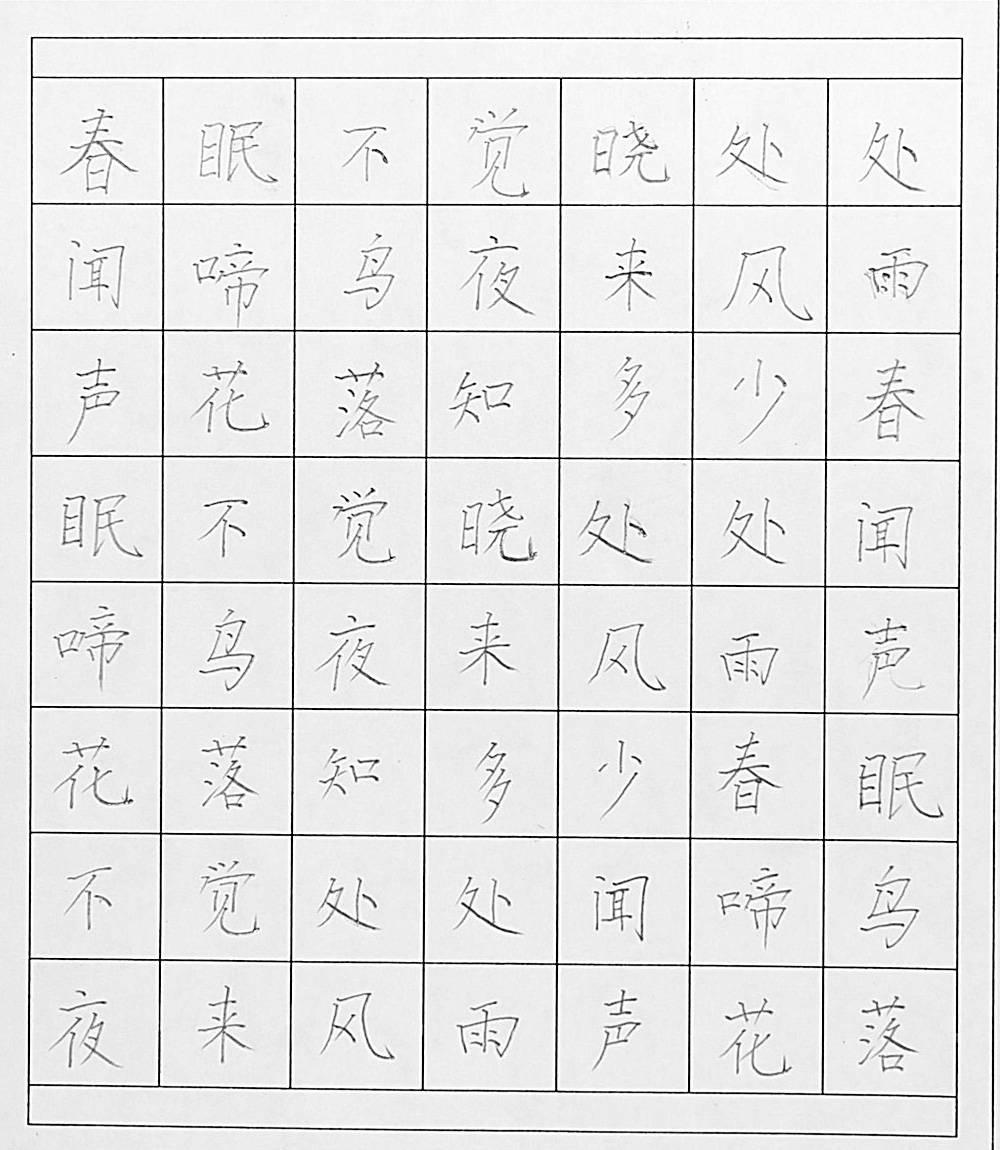 春眠不觉晓处处
闻啼鸟夜来风雨
声花落知多少春
眠不觉晓处处闻
啼鸟夜来风雨声
花落知多少春眠
不觉处处闻啼鸟
夜来风雨声花落